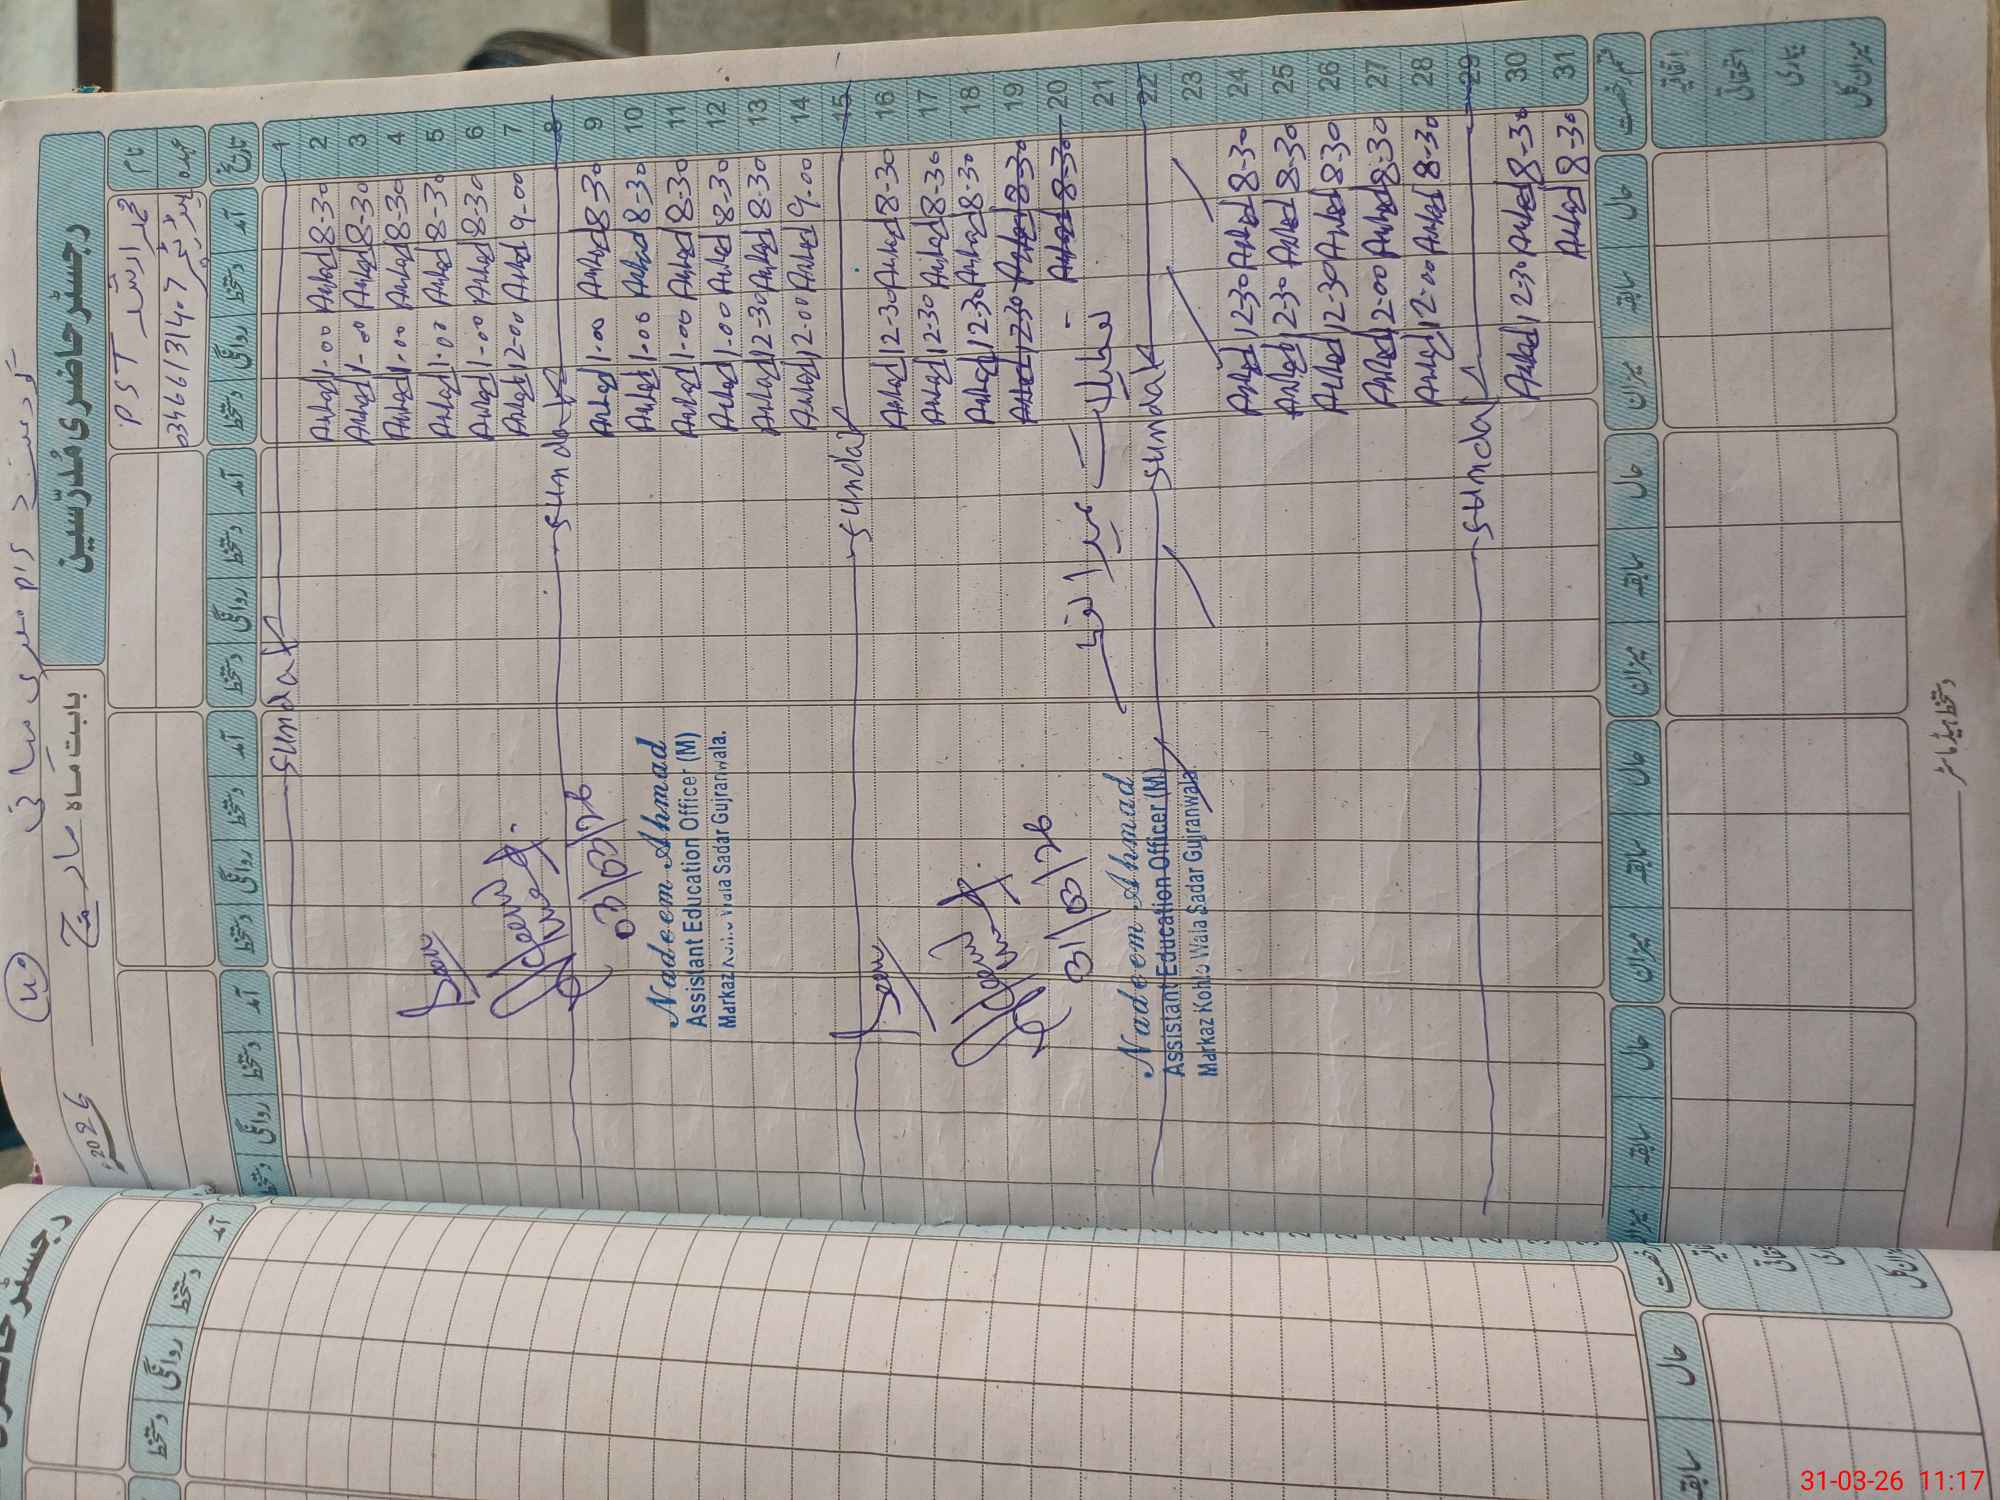 رجسٹر حاضری مُدرّسین
بابت ماہ مارچ 2026ء
نام محمد ارشد PST
عہدہ 03466131407
تاریخ آمد دستخط روانگی دستخط آمد دستخط روانگی دستخط آمد دستخط روانگی دستخط آمد دستخط روانگی دستخط
1 sunday
2 8-30 Arshad 1-00 Arshad
3 8-30 Arshad 1-00 Arshad
4 8-30 Arshad 1-00 Arshad
5 8-30 Arshad 1-00 Arshad
6 8-30 Arshad 1-00 Arshad
7 9-00 Arshad 12-00 Arshad
8 sunday
9 8-30 Arshad 1-00 Arshad
10 8-30 Arshad 1-00 Arshad
11 8-30 Arshad 1-00 Arshad
12 8-30 Arshad 1-00 Arshad
13 8-30 Arshad 12-30 Arshad
14 9-00 Arshad 12-00 Arshad
15 sunday
16 8-30 Arshad 12-30 Arshad
17 8-30 Arshad 12-30 Arshad
18 8-30 Arshad 12-30 Arshad
19 8-30 Arshad 12-30 Arshad
20 8-30 Arshad
21 تعطیلات عیدالفطر
22 sunday
23
24 8-30 Arshad 12-30 Arshad
25 8-30 Arshad 12-30 Arshad
26 8-30 Arshad 12-30 Arshad
27 8-30 Arshad 12-00 Arshad
28 8-30 Arshad 12-00 Arshad
29 sunday
30 8-30 Arshad 12-30 Arshad
31 8-30 Arshad
Seen
03/03/26
Nadeem Ahmad
Assistant Education Officer (M)
Markaz Kohlo Wala Sadar Gujranwala.
Seen
31/03/26
Nadeem Ahmad
Assistant Education Officer (M)
Markaz Kohlo Wala Sadar Gujranwala.
قسم رخصت حال سابقہ میزان حال سابقہ میزان حال سابقہ میزان حال سابقہ میزان
اتفاقیہ
استحقاقی
بیماری
میزان کل
دستخط ہیڈ ماسٹر
رجسٹر حاضری
آمد دستخط روانگی دستخط
حال سابقہ
31-03-26 11:17